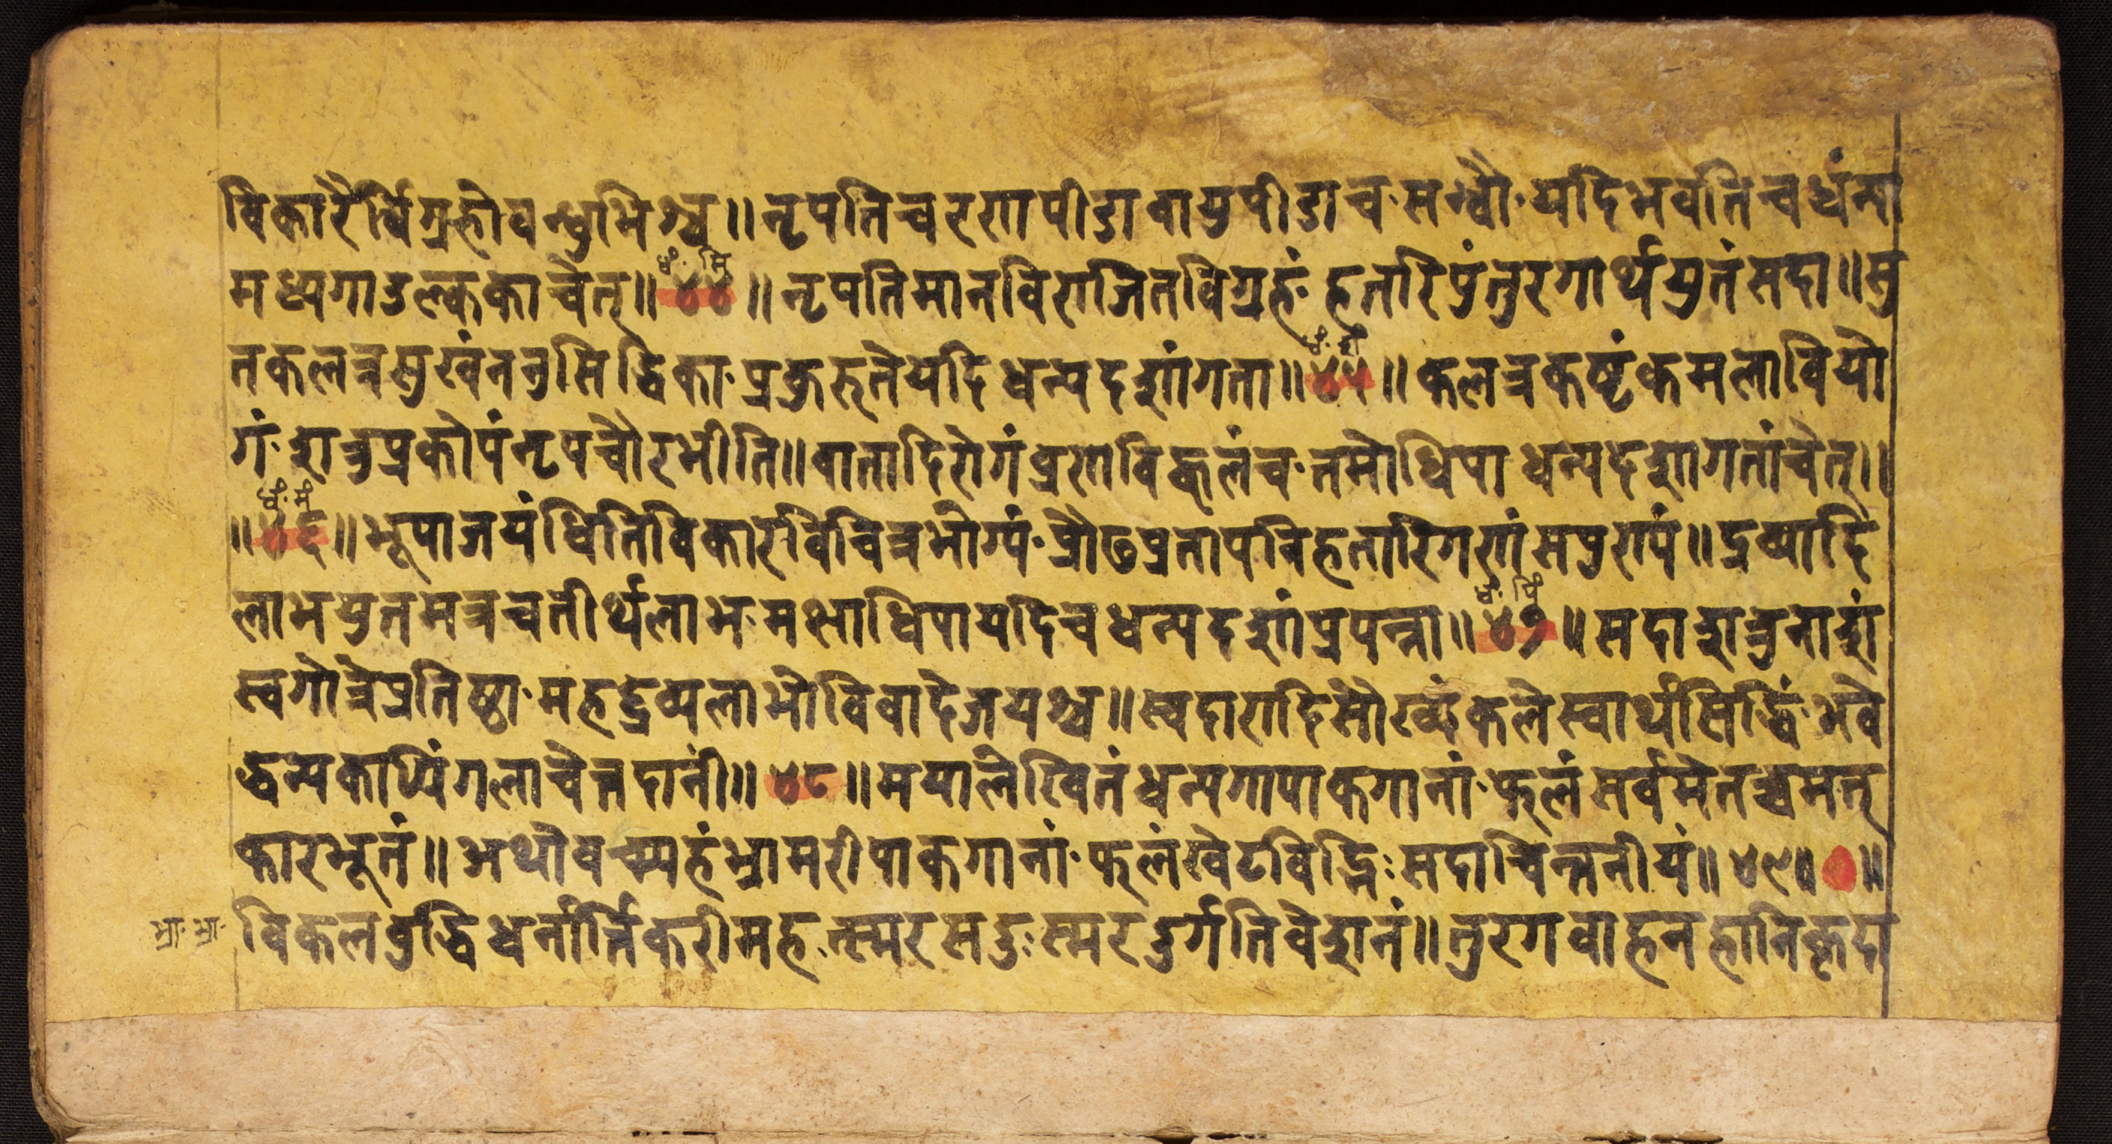 विकारैर्विग्रहोवन्धुभिश्च॥नृपतिचरणपीडावायुपीडाच·सन्धौ·यदिभवतिचधंन्या
मध्यगाउल्ककाचेत्॥४४॥नृपतिमानविराजितविग्रहं·हतरिपुंतुरगार्थयुतंसदा॥सु
तकलत्रसुखंननुसिद्धिका·प्रकुरुतेयदिधन्यदशांगता॥४५॥कलत्रकष्टंकमलावियो
गं·शत्रुप्रकोपंनृपचौरभीति॥वातादिरोगंव्रणविह्वलंच·तमोधिपाधन्यदशागतांचेत्॥
॥४६॥भूपाजयंक्षितिविकारविचित्रभोग्यं·प्रौढप्रतापनिहतारिगणंसपुण्यं॥द्रव्यादि
लाभयुतमत्रचतीर्थलाभ·मक्षाधिपायदिचधन्यदशांप्रपन्ना॥४७॥सदाशत्रुनाशं
स्वगोत्रेप्रतिष्ठा·महद्द्रव्यलाभोविवादेजयश्च॥स्वदारादिसौख्यंकलेस्वार्थसिद्धिं·भवे
द्धन्यकापिंगलाचेत्तदानीं॥४८॥मयालेखितंधन्यगापाकगानां·फलंसर्वमेतच्चमत्
कारभूतं॥अथोवच्म्यहंभ्रामरीपाकगानां·फलंखेटविद्भिःसदाचिन्तनीयं॥४९॥०॥
भ्रा·भ्रा·विकलवुद्धिधनार्त्तिकरीमह·त्स्मरसदुःस्मरदुर्गतिवेशनं॥तुरगवाहनहानिकृदा